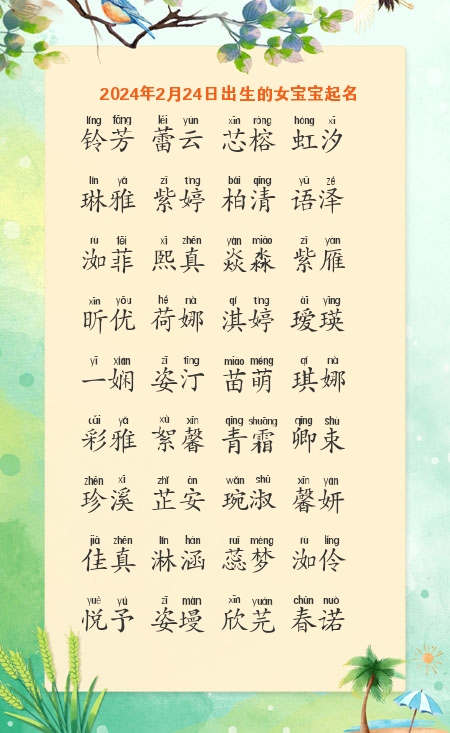 2024年2月24日出生的女宝宝起名
líng fāng lěi yún xīn róng hóng xī
铃芳 蕾云 芯榕 虹汐
lín yǎ zǐ tíng bǎi qīng yǔ zé
琳雅 紫婷 柏清 语泽
rù fēi xī zhēn yàn miǎo zǐ yàn
洳菲 熙真 焱淼 紫雁
xīn yōu hé nà qí tíng ài yīng
昕优 荷娜 淇婷 瑷瑛
yī xián zī tīng miáo méng qí nà
一娴 姿汀 苗萌 琪娜
cǎi yǎ xù xīn qīng shuāng qīng shù
彩雅 絮馨 青霜 卿束
zhēn xī zhǐ ān wǎn shū xīn yán
珍溪 芷安 琬淑 馨妍
jiā zhēn lín hán ruǐ mèng rù líng
佳真 淋涵 蕊梦 洳伶
yuè yú zī màn xīn yuán chūn nuò
悦予 姿墁 欣芫 春诺